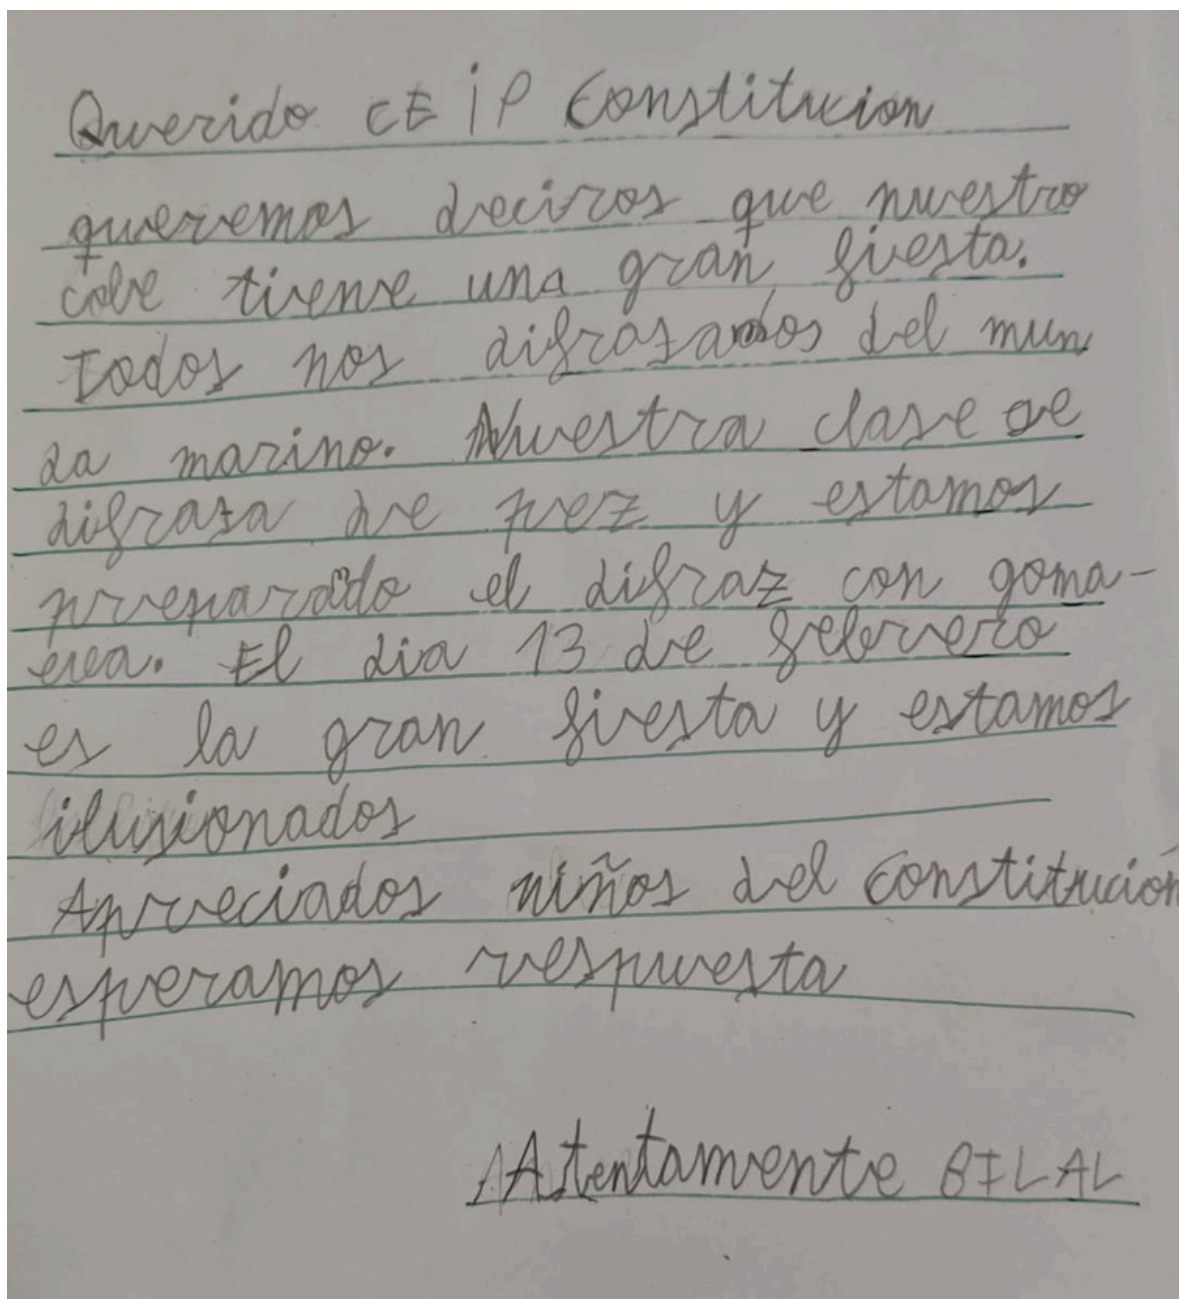 Querido CEIP Constitucion
queremos deciros que nuestro
cole tiene una gran fiesta.
Todos nos difrazamos del mun
da marino. Nuestra clase se
difraza de pez y estamos
preparado el difraz con goma-
eva. El dia 13 de febrero
es la gran fiesta y estamos
ilusionados
Apreciados niños del Constitución
esperamos respuesta
Atentamente BILAL